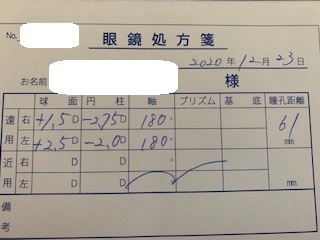 No.
眼鏡処方箋
2020年12月23日
お名前 様
球面 円柱 軸 プリズム 基底 瞳孔距離
遠用 右 +1,5D -2,75D 180° 61mm
左 +2,5D -2,0D 180°
近用 右 D D °
左 D D mm
備考